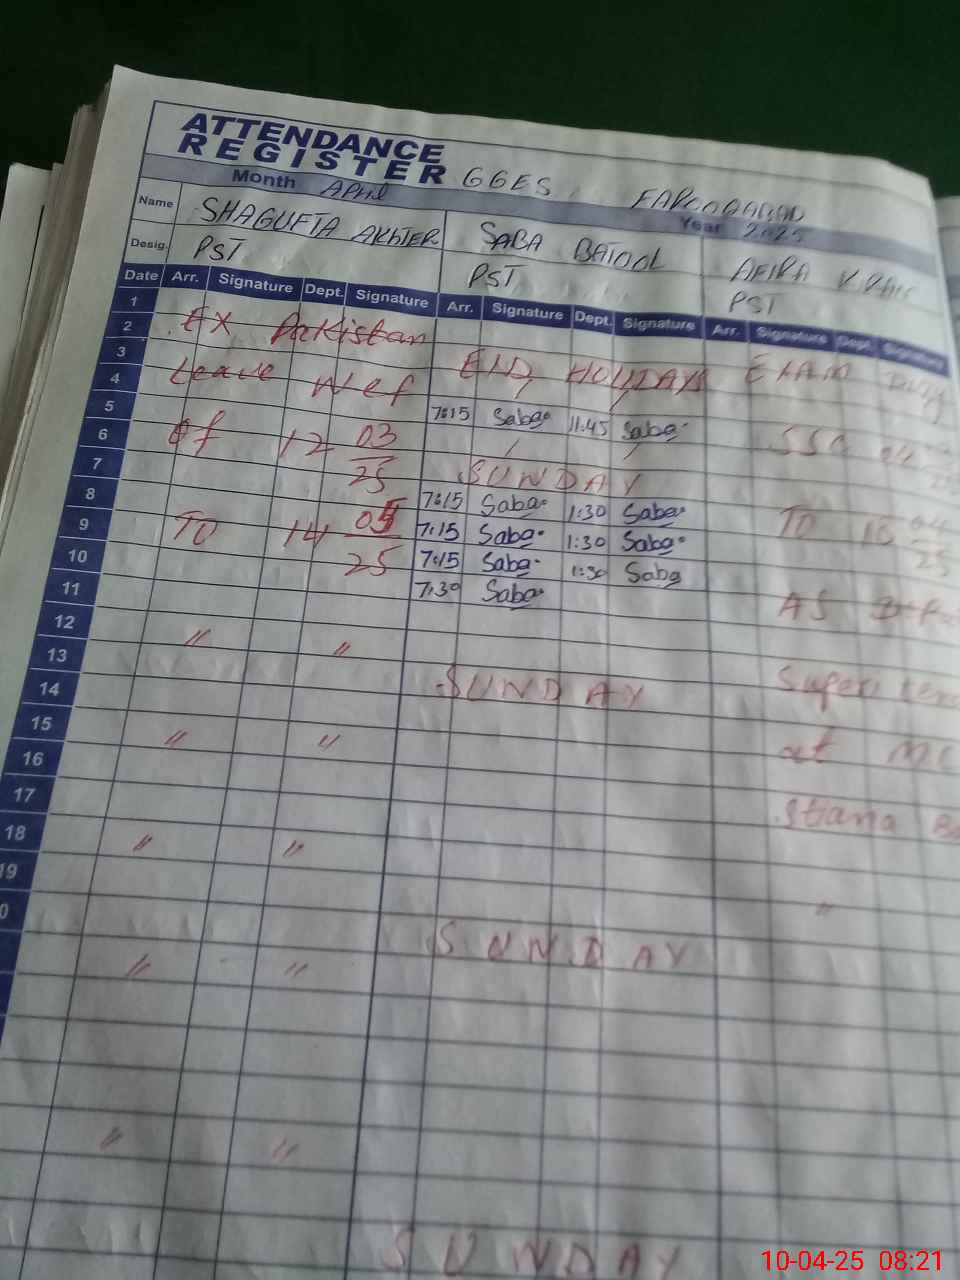 ATTENDANCE
REGISTER GGES FAROOQABAD
Month April Year 2025
Name SHAGUFTA AKHTER SABA BATOOL AFIRA KIRAN
Desig. PST PST PST
Date Arr. Signature Dept. Signature Arr. Signature Dept. Signature Arr. Signature Dept. Signature
1
2 EX Pakistan
3 END HOLIDAYS EXAM Duty
4 Leave wef
5 7:15 Saba 11:45 Saba
6 of 12 03 SSC 04
7 25 SUNDAY 25
8 7:15 Saba 1:30 Saba
9 TO 14 05 7:15 Saba 1:30 Saba TO 04
10 25 7:15 Saba 1:30 Saba 25
11 7:30 Saba AS
12 " "
13
14 SUNDAY
15 " " at
16
17
18 " "
19
0 "
SUNDAY
" "
" "
SUNDAY
10-04-25 08:21